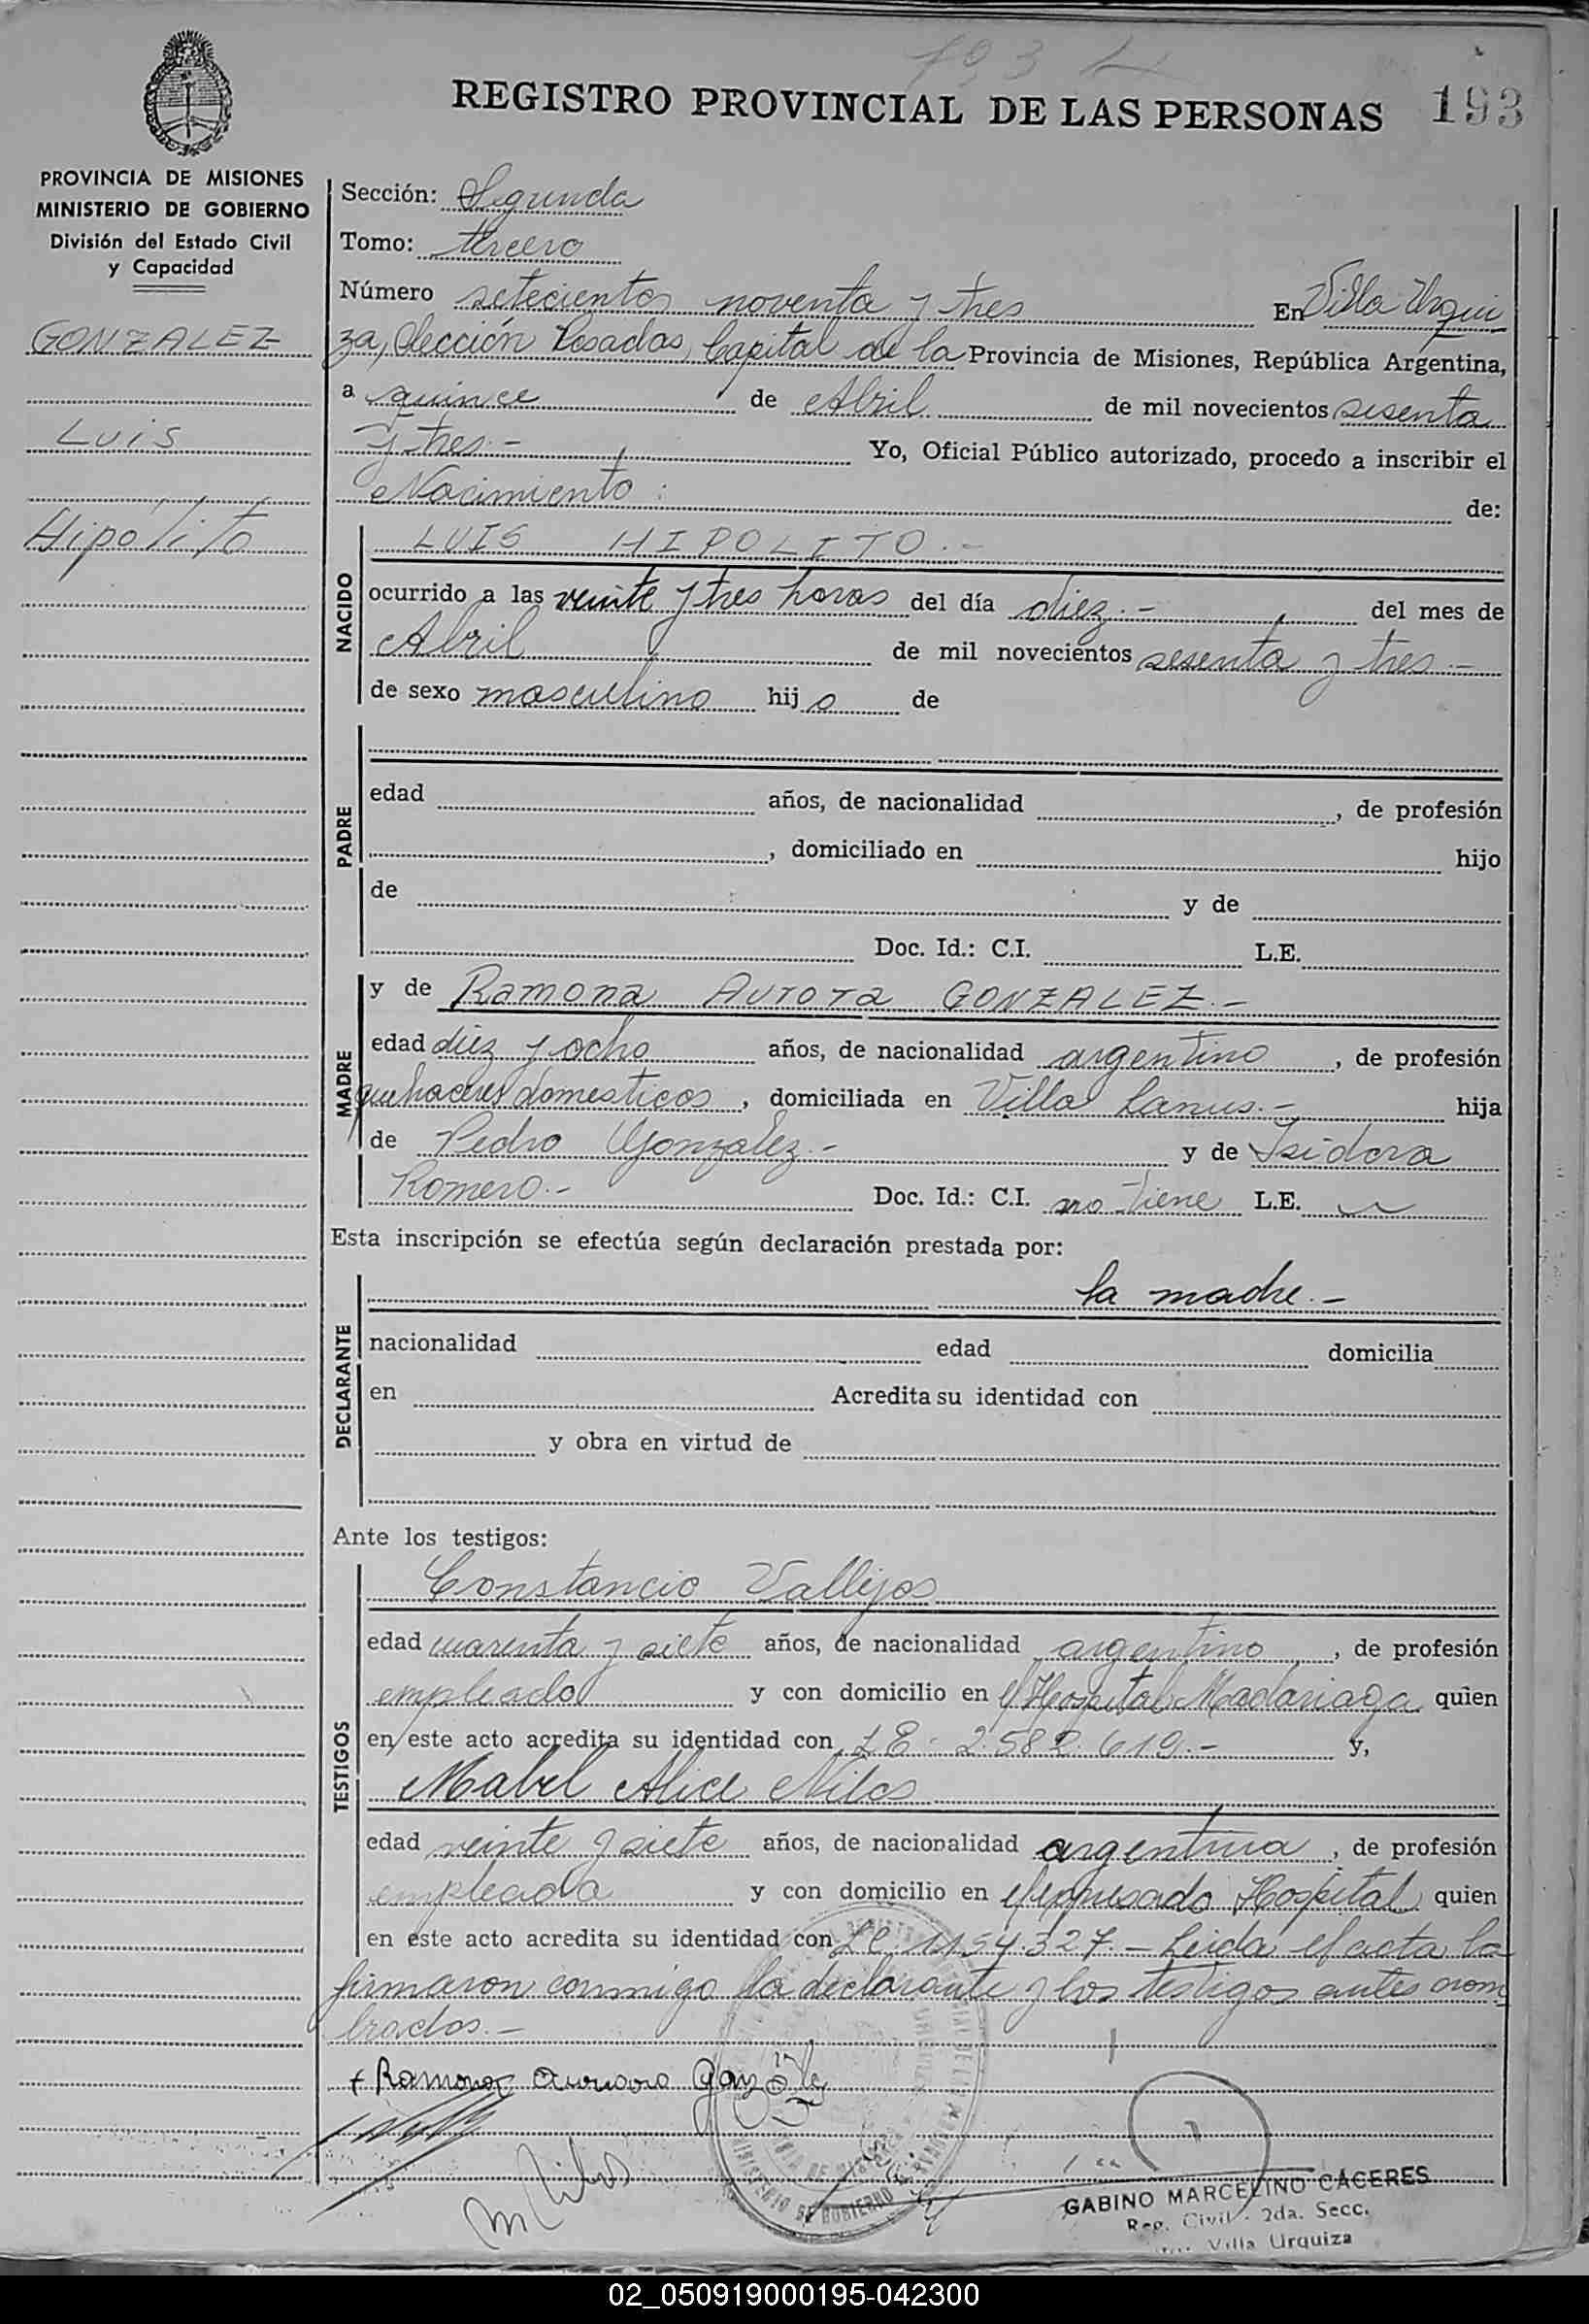 193
REGISTRO PROVINCIAL DE LAS PERSONAS
PROVINCIA DE MISIONES
MINISTERIO DE GOBIERNO
División del Estado Civil
y Capacidad
GONZALEZ
Luis
Hipólito
Sección: Segunda
Tomo: tercero
Número setecientos noventa y tres En Villa Urqui
za, Sección Posadas, Capital de la Provincia de Misiones, República Argentina,
a quince de Abril de mil novecientos sesenta
y tres.- Yo, Oficial Público autorizado, procedo a inscribir el
Nacimiento: de:
NACIDO
LUIS HIPOLITO.-
ocurrido a las veinte y tres horas del día diez.- del mes de
Abril de mil novecientos sesenta y tres.-
de sexo masculino hijo de
PADRE
edad años, de nacionalidad , de profesión
, domiciliado en hijo
de y de
Doc. Id.: C.I. L.E.
MADRE
y de Ramona Aurora GONZALEZ.-
edad diez y ocho años, de nacionalidad argentino, de profesión
quehaceres domesticos, domiciliada en Villa Lanus.- hija
de Pedro Gonzalez.- y de Isidora
Romero.- Doc. Id.: C.I. no tiene L.E.
Esta inscripción se efectúa según declaración prestada por:
DECLARANTE
la madre.-
nacionalidad edad domicilia
en Acredita su identidad con
y obra en virtud de
Ante los testigos:
TESTIGOS
Constancio Vallejos
edad cuarenta y siete años, de nacionalidad argentino, de profesión
empleado y con domicilio en el Hospital Madariaga quien
en este acto acredita su identidad con LE. 2.582.619.- y,
Mabel Alice Nilos
edad veinte y siete años, de nacionalidad argentina, de profesión
empleada y con domicilio en el expresado Hospital quien
en este acto acredita su identidad con LC 1154.327.- Leida el acta la
firmaron conmigo la declarante y los testigos antes nom
brados.-
Ramona
GABINO MARCELINO CACERES
Reg. Civil - 2da. Secc.
Villa Urquiza
02_050919000195-042300